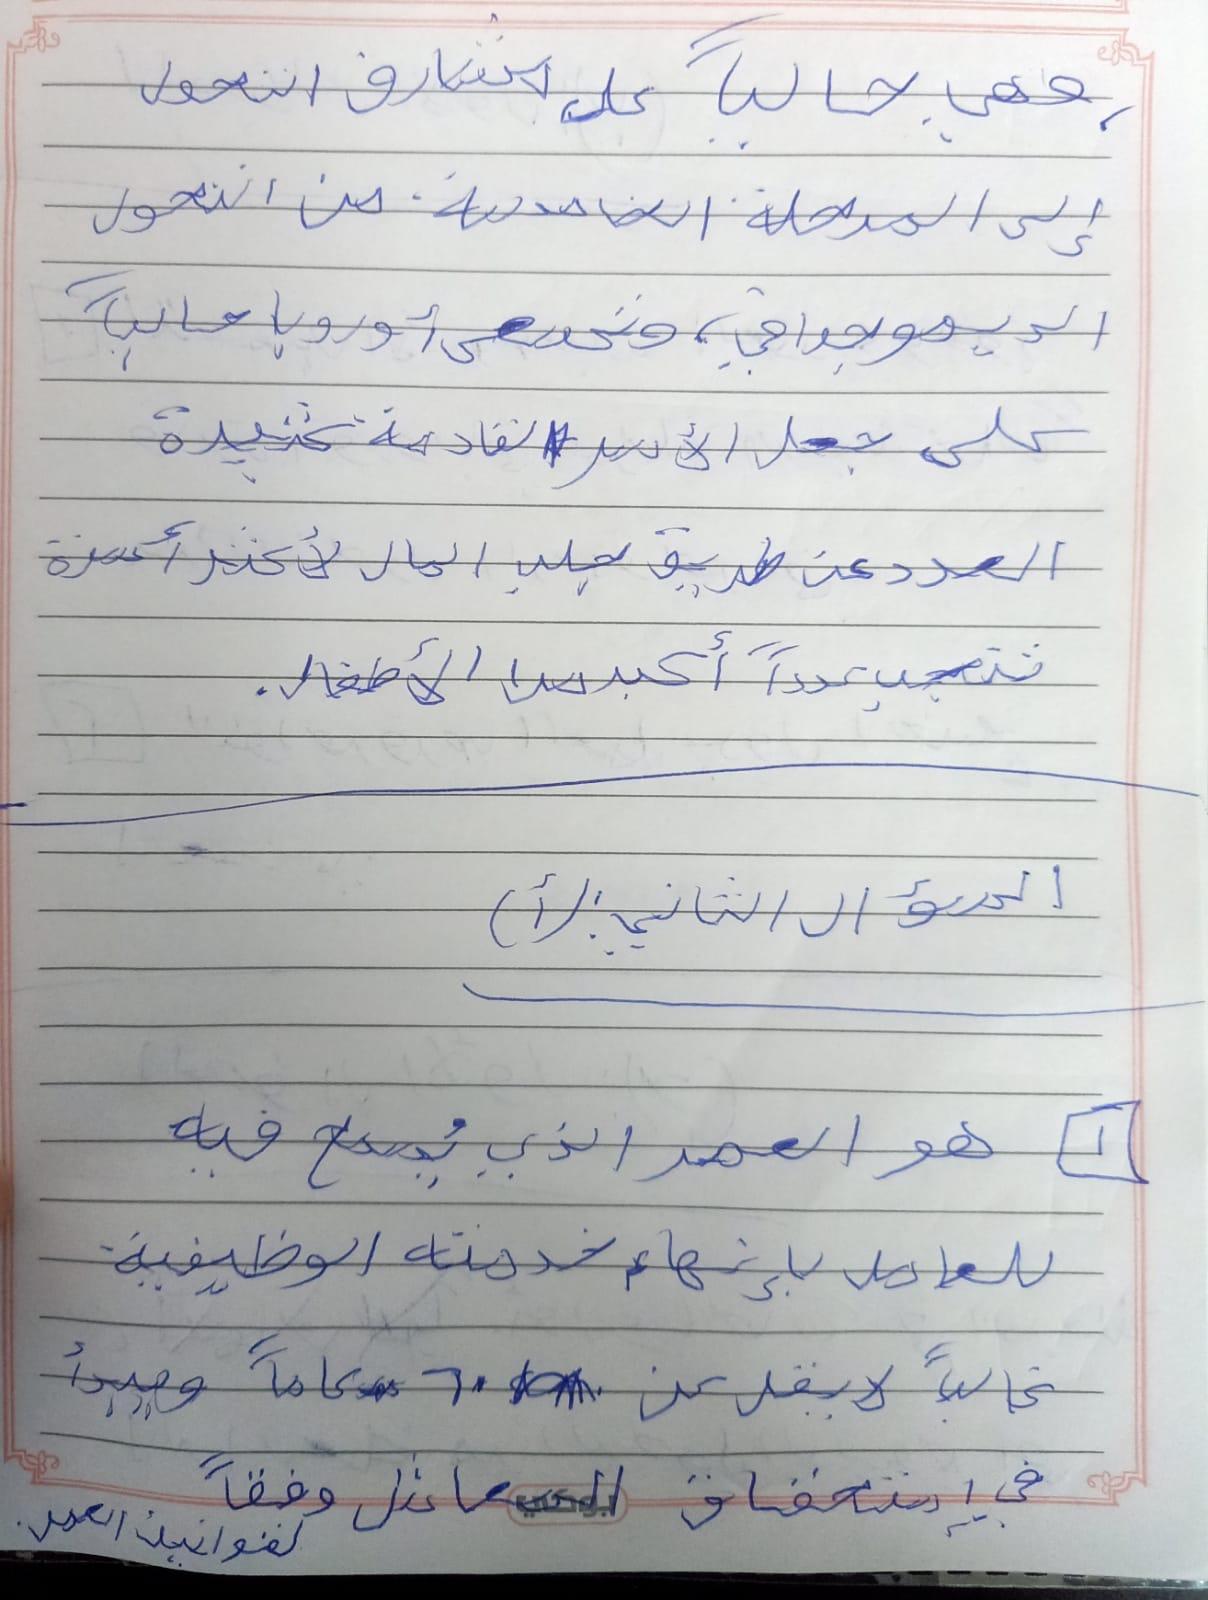 وهي حالياً على مشارف التحول
إلى المرحلة الخامسة من التحول
الديموجرافي، وتحرص أوروبا حالياً
على جعل الأسر القادمة كثيرة
العدد عن طريق جلب المال لأكثر أسرة
تنجب عدداً أكبر من الأطفال.
السؤال الثاني: (أ)
١ هو العمر الذي يُسمح فيه
للعامل بإنهاء خدمته الوظيفية
غالباً لا يقل عن ٦٠ عاماً ويبدأ
في إستحقاق المعاش وفقاً
لقوانين العمل.